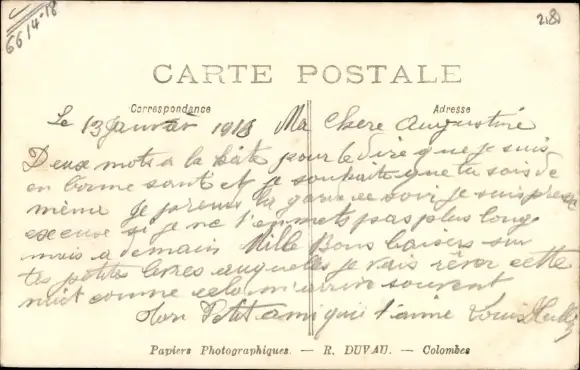 6614-18
218
CARTE POSTALE
Correspondance
Adresse
Le 13 Janvier 1918 Ma Chere Augustine
Deux mots a la hâte pour te dire que je suis
en bonne santé et je souhaite que tu sois de
même je prends la garde ce soir je suis pressé
excuse si je ne t'en mets pas plus long
mais a demain Mille Bons baisers sur
tes petites levres auquelles je vais rêver cette
nuit comme cela m'arrive souvent
Ton Petit ami qui t'aime Louis
Papiers Photographiques. — R. DUVAU. — Colombes